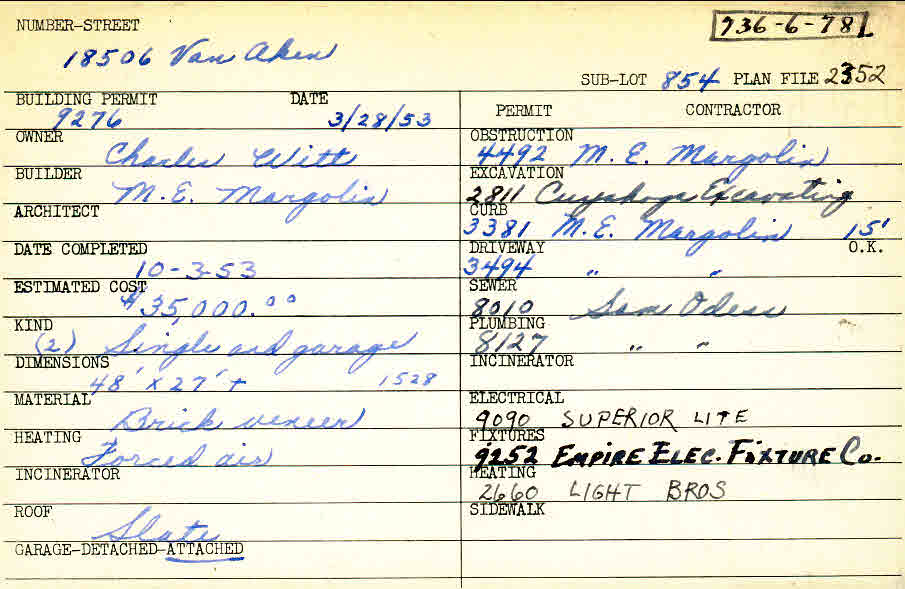 NUMBER-STREET
736-6-78
18506 Van Aken
SUB-LOT 854 PLAN FILE 2352
BUILDING PERMIT DATE
9276 3/28/53
OWNER
Charles Witt
BUILDER
M. E. Margolin
ARCHITECT
DATE COMPLETED
10-3-53
ESTIMATED COST
$35,000.00
KIND
(2) Single and garage
DIMENSIONS
48' x 27' + 1528
MATERIAL
Brick veneer
HEATING
Forced air
INCINERATOR
ROOF
Slate
GARAGE-DETACHED-ATTACHED
PERMIT CONTRACTOR
OBSTRUCTION
4492 M. E. Margolin
EXCAVATION
2811 Cuyahoga Excavating
CURB
3381 M. E. Margolin 15'
DRIVEWAY O.K.
3494 " "
SEWER
8010 Sam Odess
PLUMBING
8127 " "
INCINERATOR
ELECTRICAL
9090 SUPERIOR LITE
FIXTURES
9252 EMPIRE ELEC. FIXTURE CO.
HEATING
2660 LIGHT BROS
SIDEWALK